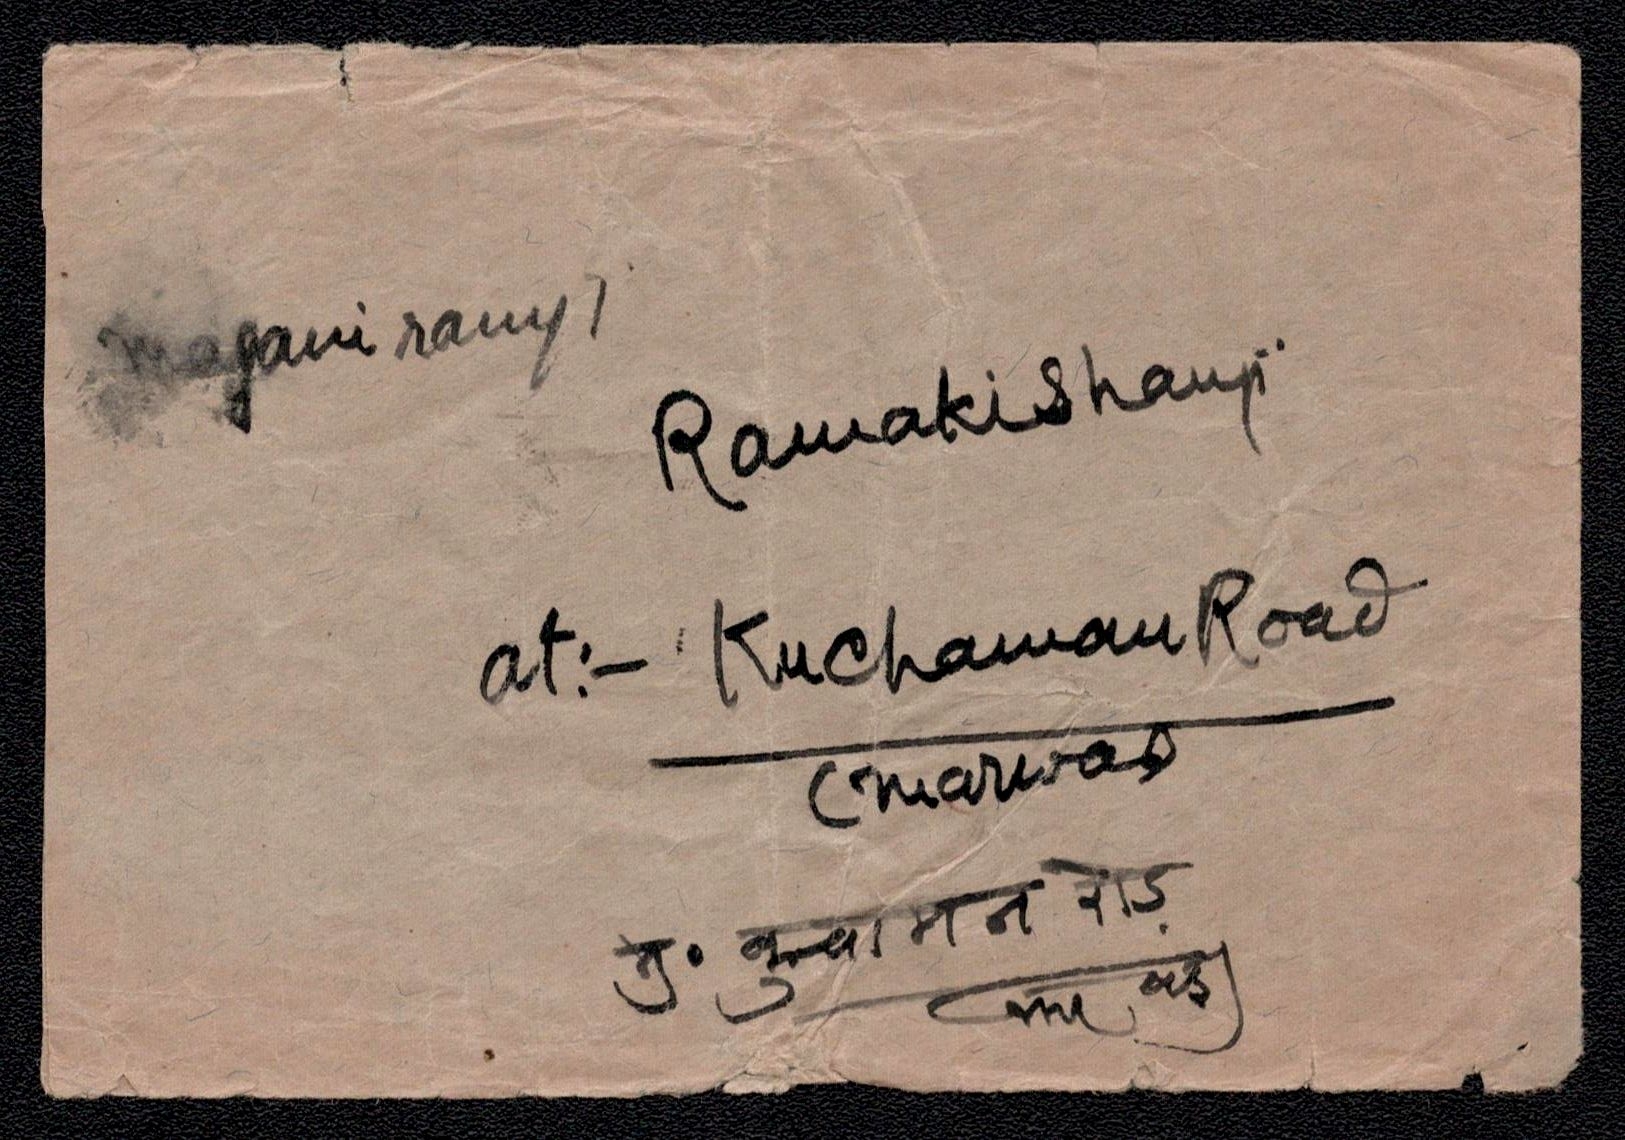 maganiramji
Ramakishanji
at:- Kuchaman Road
(marwad
मु॰ कुचामन रोड
(मारवाड)